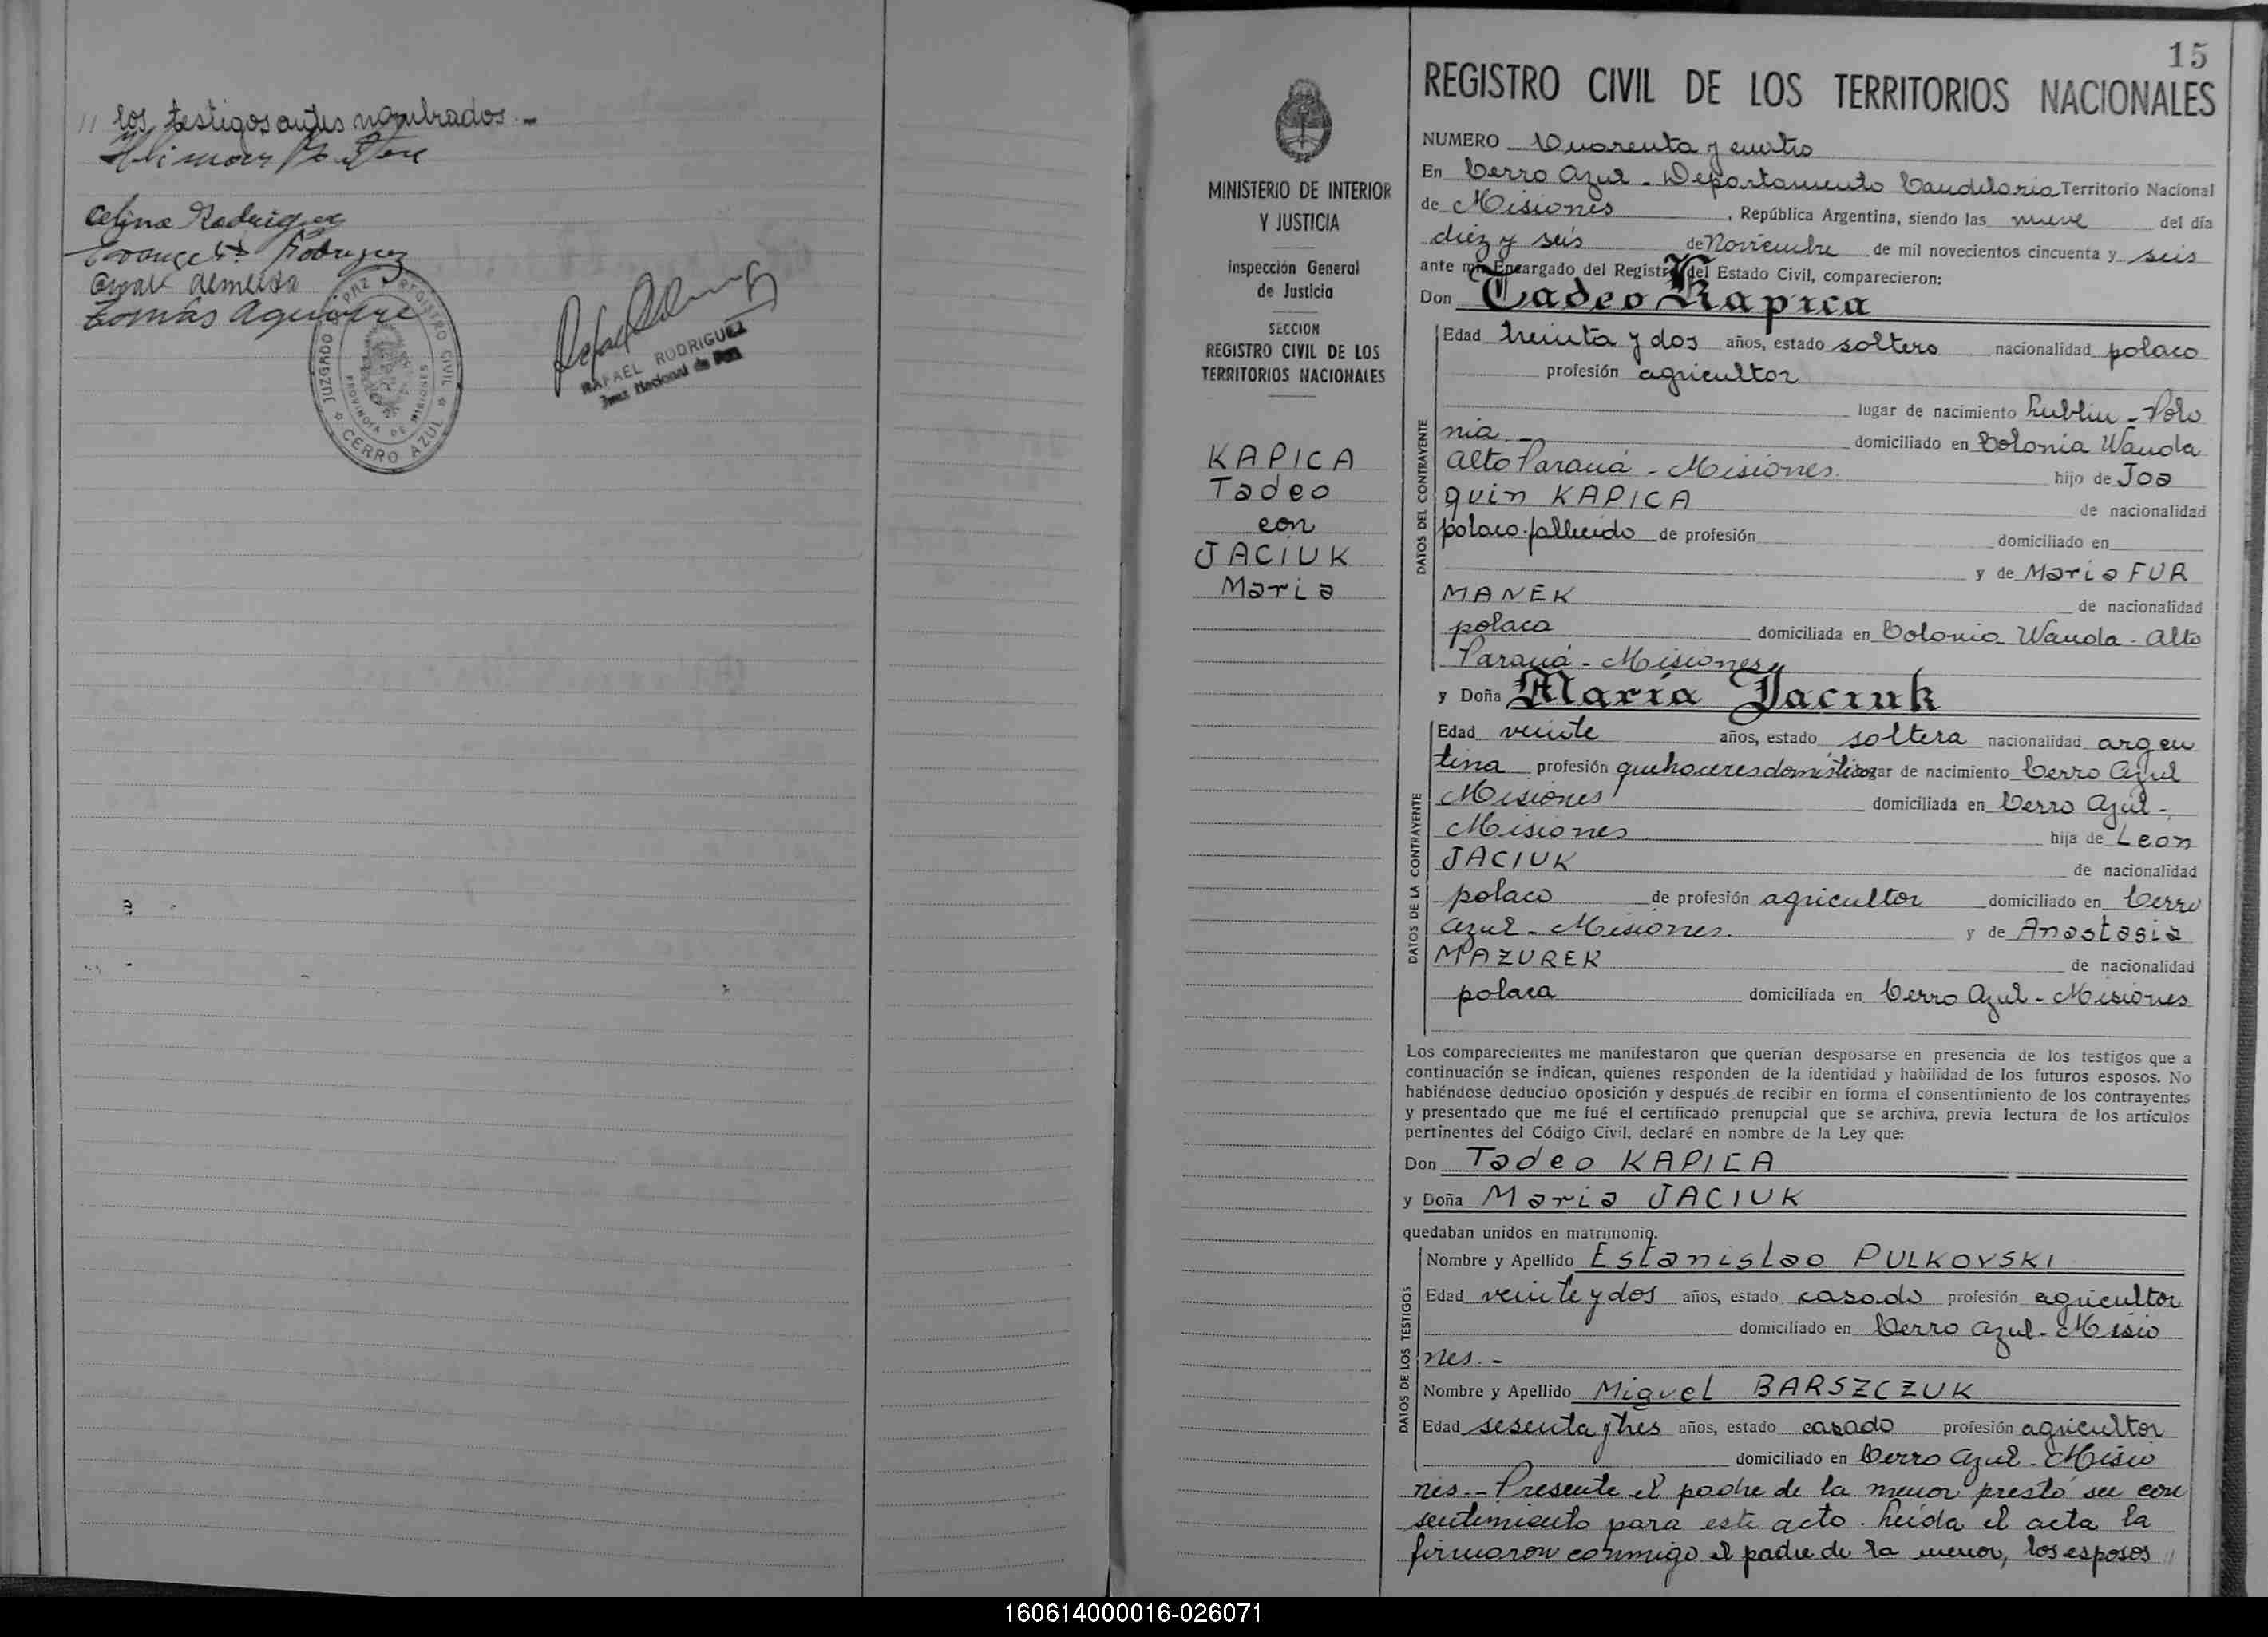 // los testigos antes nombrados.-
Celina Rodriguez
Evangelista Rodriguez
Tomás Aguirre
JUZGADO DE PAZ Y REGISTRO CIVIL
PROVINCIA DE MISIONES
CERRO AZUL
RAFAEL RODRIGUEZ
Juez Nacional de Paz
15
MINISTERIO DE INTERIOR
Y JUSTICIA
Inspección General
de Justicia
SECCION
REGISTRO CIVIL DE LOS
TERRITORIOS NACIONALES
KAPICA
Tadeo
con
JACIUK
Maria
REGISTRO CIVIL DE LOS TERRITORIOS NACIONALES
NUMERO Cuarenta y cuatro
En Cerro Azul - Departamento Candelaria Territorio Nacional
de Misiones, República Argentina, siendo las nueve del día
diez y seis de Noviembre de mil novecientos cincuenta y seis
ante mí, Encargado del Registro del Estado Civil, comparecieron:
Don Tadeo Kapica
DATOS DEL CONTRAYENTE
Edad treinta y dos años, estado soltero nacionalidad polaco
profesión agricultor
lugar de nacimiento Lublin - Polo
nia.- domiciliado en Colonia Wanda
Alto Paraná - Misiones. hijo de Joa
quin KAPICA de nacionalidad
polaco-fallecido de profesión domiciliado en
y de Maria FUR
MANEK de nacionalidad
polaca domiciliada en Colonia Wanda - Alto
Paraná - Misiones
y Doña María Jaciuk
DATOS DE LA CONTRAYENTE
Edad veinte años, estado soltera nacionalidad argen
tina profesión quehaceres domésticos lugar de nacimiento Cerro Azul
Misiones domiciliada en Cerro Azul -
Misiones hija de Leon
JACIUK de nacionalidad
polaco de profesión agricultor domiciliado en Cerro
Azul - Misiones. y de Anastasia
MAZUREK de nacionalidad
polaca domiciliada en Cerro Azul - Misiones
Los comparecientes me manifestaron que querían desposarse en presencia de los testigos que a
continuación se indican, quienes responden de la identidad y habilidad de los futuros esposos. No
habiéndose deducido oposición y después de recibir en forma el consentimiento de los contrayentes
y presentado que me fué el certificado prenupcial que se archiva, previa lectura de los artículos
pertinentes del Código Civil, declaré en nombre de la Ley que:
Don Tadeo KAPICA
y Doña Maria JACIUK
quedaban unidos en matrimonio.
DATOS DE LOS TESTIGOS
Nombre y Apellido Estanislao PULKOVSKI
Edad veinte y dos años, estado casado profesión agricultor
domiciliado en Cerro Azul - Misio
nes.-
Nombre y Apellido Miguel BARSZCZUK
Edad sesenta y tres años, estado casado profesión agricultor
domiciliado en Cerro Azul - Misio
nes.- Presente el padre de la menor prestó su con
sentimiento para este acto. Leída el acta la
firmaron conmigo el padre de la menor, los esposos //
160614000016-026071